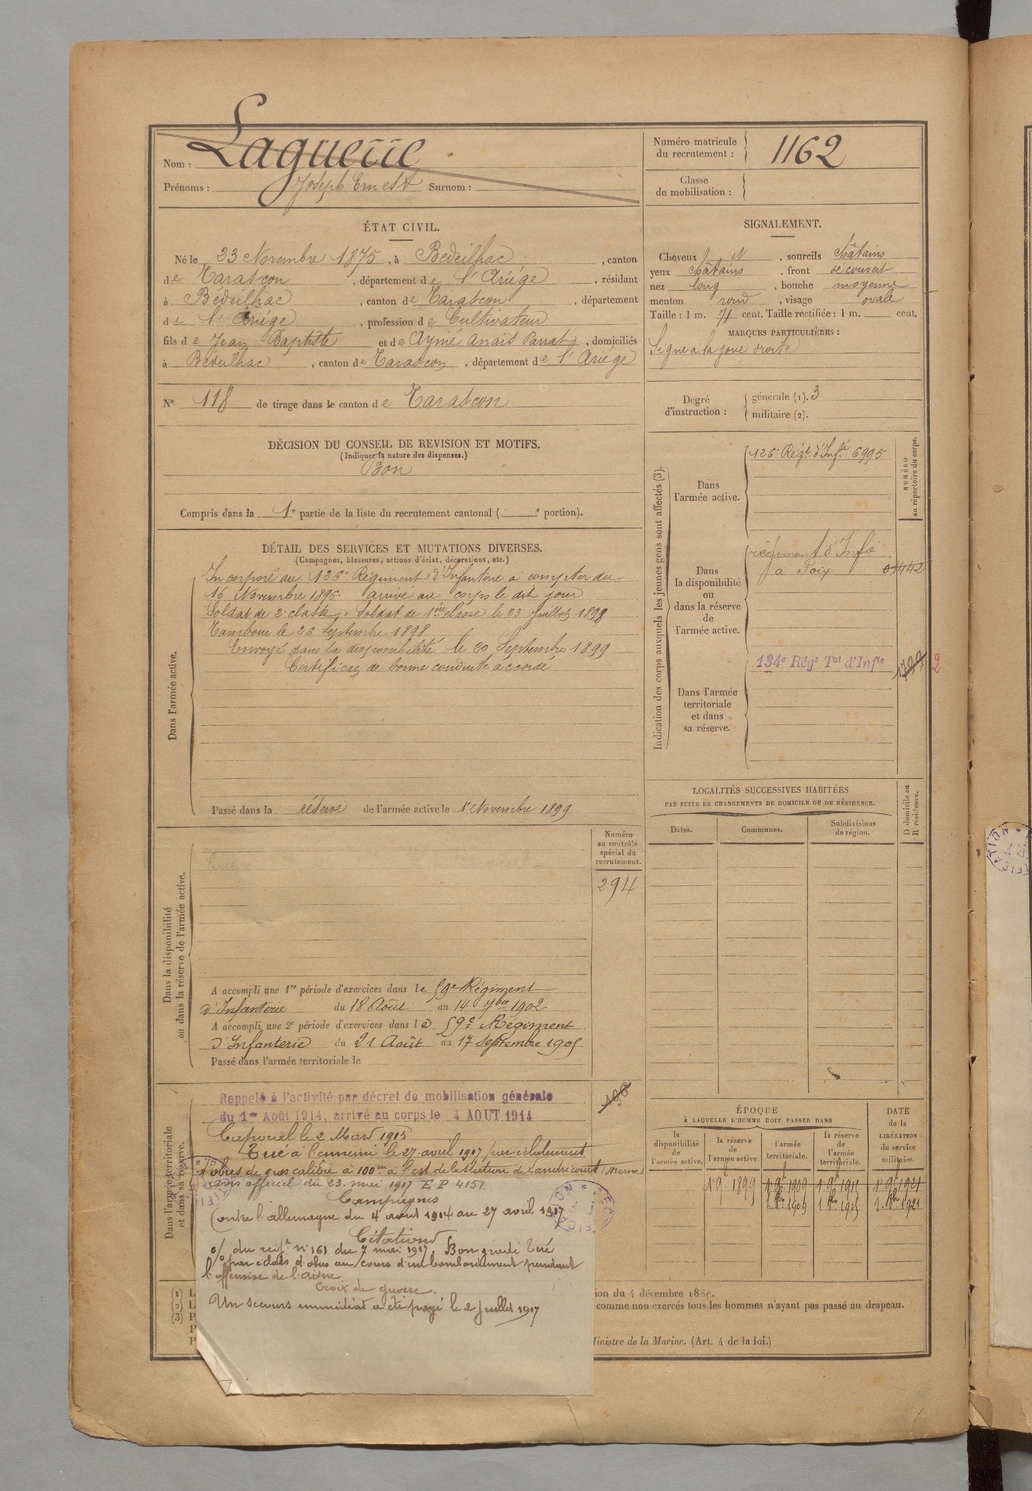 Nom : Laguerre
Prénoms : Joseph Ernest Surnom :
Numéro matricule
du recrutement : 1162
Classe
de mobilisation :
ÉTAT CIVIL.
Né le 23 Novembre 1875, à Bédeilhac, canton
de Tarascon, département de l'Ariège, résidant
à Bédeilhac, canton de Tarascon, département
de l'Ariège, profession de Cultivateur
fils de Jean Baptiste et de Aymé Anaïs, domiciliés
à Bédeilhac, canton de Tarascon, département de l'Ariège
N° 118 de tirage dans le canton de Tarascon
SIGNALEMENT.
Cheveux et, sourcils châtains
yeux châtains, front découvert
nez long, bouche moyenne
menton rond, visage ovale
Taille : 1 m. 71 cent. Taille rectifiée : 1 m. cent.
MARQUES PARTICULIÈRES :
Signe à la joue droite
Degré
d'instruction :
générale (1). 3
militaire (2).
DÉCISION DU CONSEIL DE REVISION ET MOTIFS.
(Indiquer la nature des dispenses.)
Bon
Compris dans la 1e partie de la liste du recrutement cantonal ( e portion).
DÉTAIL DES SERVICES ET MUTATIONS DIVERSES.
(Campagnes, blessures, actions d'éclat, décorations, etc.)
Dans l'armée active.
Incorporé au 126e Régiment d'Infanterie à compter du
16 Novembre 1896. Arrivé au corps le dit jour
Soldat de 2e classe. Soldat de 1ère classe le 23 Juillet 1898
Tambour le 26 Septembre 1898
Envoyé dans la disponibilité le 20 Septembre 1899
Certificat de bonne conduite accordé
Passé dans la réserve de l'armée active le 1er Novembre 1899
Indication des corps auxquels les jeunes gens sont affectés (3).
NUMÉRO
au répertoire du corps.
Dans
l'armée active.
126e Régt d'Infie 6995
Dans
la disponibilité
ou
dans la réserve
de
l'armée active.
régiment d'Infie
à Foix
Dans l'armée
territoriale
et dans
sa réserve.
134e Régt Tal d'Infie
2
LOCALITÉS SUCCESSIVES HABITÉES
PAR SUITE DE CHANGEMENTS DE DOMICILE OU DE RÉSIDENCE.
Dates.
Communes.
Subdivisions
de région.
D domicile ou
R résidence.
Dans la disponibilité
ou dans la réserve de l'armée active.
Numéro
au contrôle
spécial du
recrutement.
294
A accompli une 1re période d'exercices dans le 59e Régiment
d'Infanterie du 18 Août au 14 7bre 1902
A accompli une 2e période d'exercices dans le 59e Régiment
d'Infanterie du 21 Août au 17 Septembre 1905
Passé dans l'armée territoriale le
Dans l'armée territoriale
et dans sa réserve.
Rappelé à l'activité par décret de mobilisation générale
du 1er Août 1914, arrivé au corps le 4 AOUT 1914
Caporal le 2 Mars 1915
Tué à l'ennemi le 27 avril 1917 par éclatement
d'obus de gros calibre à 100m à l'est de la station de Sandricourt (Marne)
avis officiel du 23 mai 1917 E P 4151
Campagnes
Contre l'allemagne du 4 août 1914 au 27 avril 1917
Citation
o/ du regt n° 161 du 7 mai 1917. Bon gradé tué
par éclats d'obus au cours d'un bombardement pendant
l'offensive de l'aisne
Croix de guerre
Un secours immédiat a été payé le 2 juillet 1917
ÉPOQUE
À LAQUELLE L'HOMME DOIT PASSER DANS
la
disponibilité
de
l'armée active.
la réserve
de
l'armée active.
l'armée
territoriale.
la réserve
de
l'armée
territoriale.
DATE
de la
LIBÉRATION
du service
militaire.
(1)
(2)
(3)
comme non exercés tous les hommes n'ayant pas passé au drapeau.
Ministre de la Marine. (Art. 4 de la loi.)